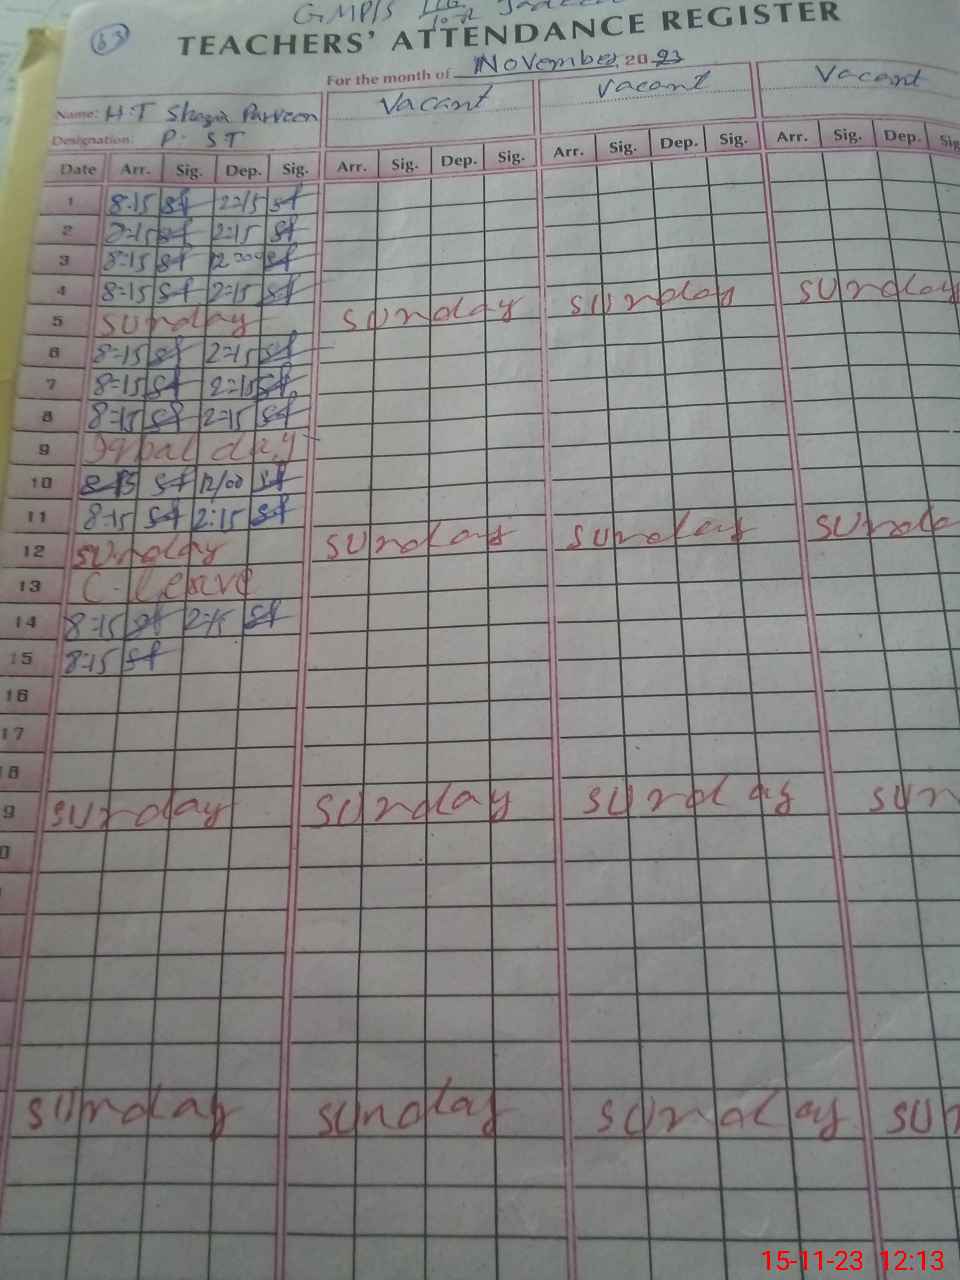 63
GMP/S
TEACHERS' ATTENDANCE REGISTER
For the month of November 2023
Name: H.T Shazia Parveen Vacant Vacant Vacant
Designation: P. ST
Date Arr. Sig. Dep. Sig. Arr. Sig. Dep. Sig. Arr. Sig. Dep. Sig. Arr. Sig. Dep. Sig
1 8-15 2=15
2 8=15 2=15
3 8=15 12=00
4 8=15 2=15
5 Sunday Sunday Sunday Sunday
6 8=15 2=15
7 8=15 2=15
8 8=15 2=15
9 Iqbal day
10 8-15 12/00
11 8=15 2:15
12 Sunday Sunday Sunday Sunda
13 C-leave
14 8=15 2=15
15 8=15
16
17
18
9 Sunday Sunday Sunday Sun
0
Sunday Sunday Sunday Sun
15-11-23 12:13